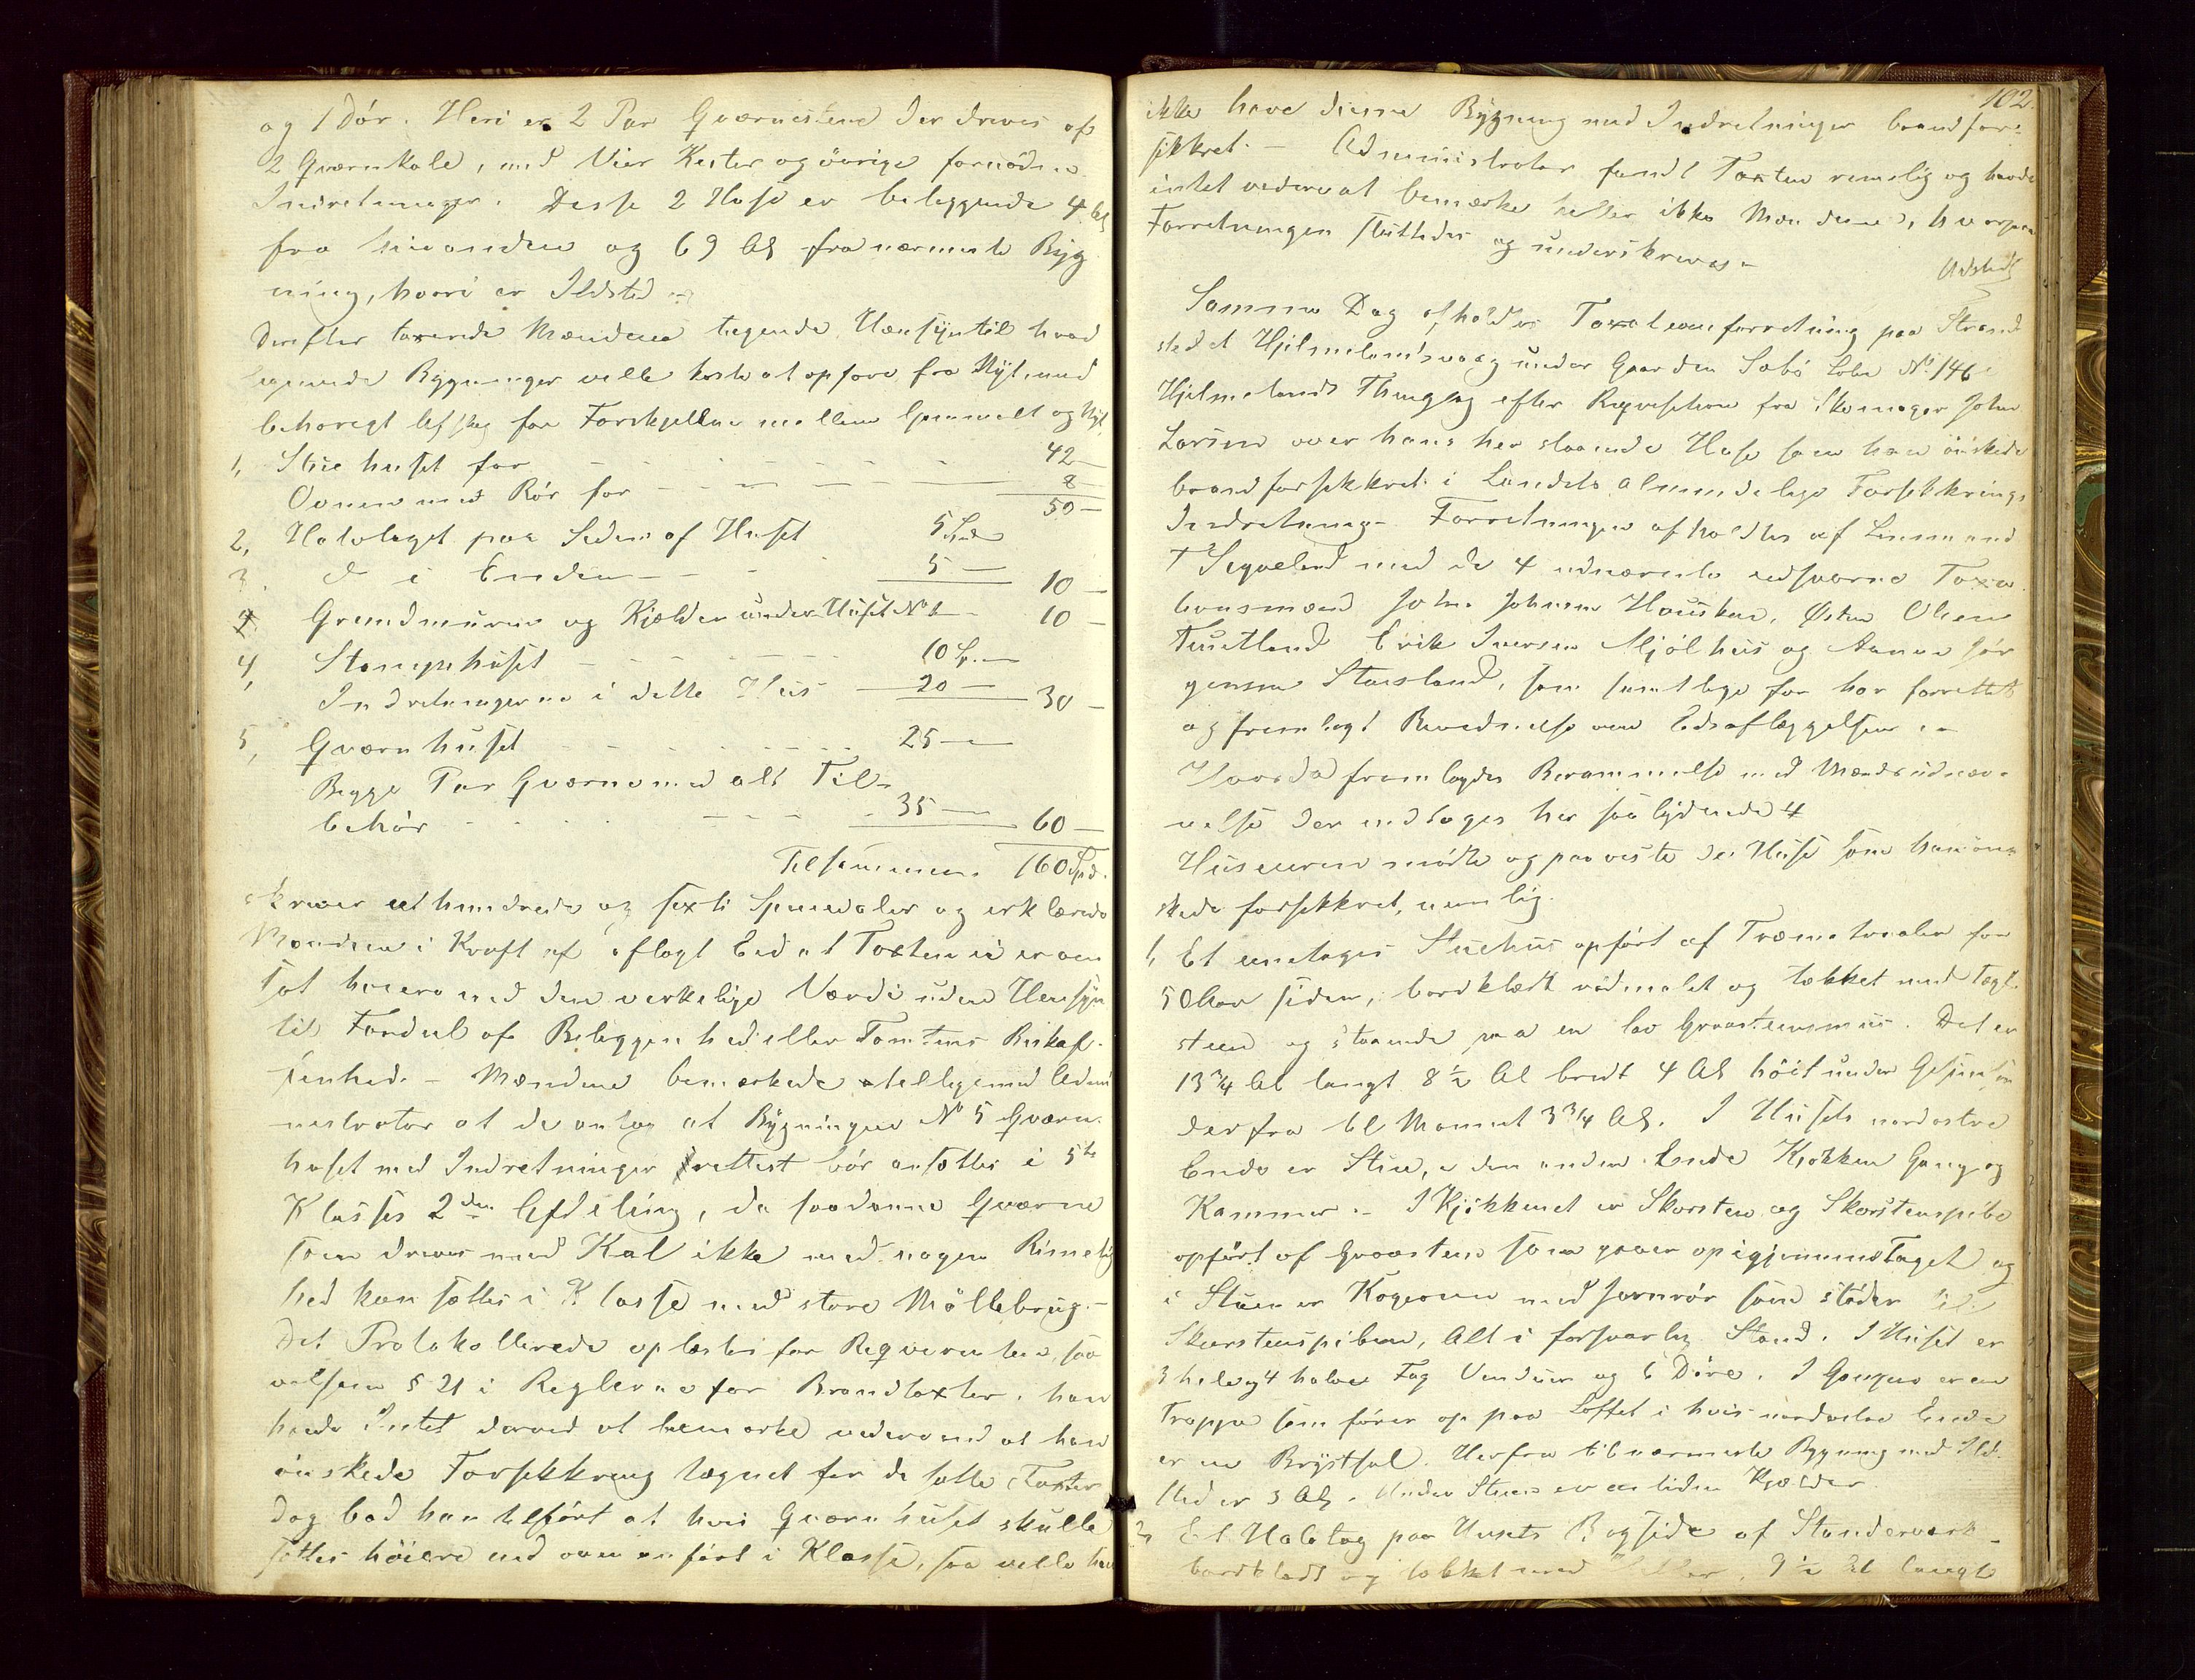 og 1 Dör. Heri er 2 Par Qværnstene der drives af
2 Qværnkale, med Vier Kister og övrige fornödne
Indretninger. Disse 2 Huse er beliggende 4 Al
fra hinanden og 69 Al fra nærmeste Byg
ning, hvori er Ildsted
Derefter taxerede Mændene tagende Hensyn til hvad
lignende Bygninger ville koste at opföre fra Nyt, med
behörigt Afslag for Forskjellen mellem Gammelt og Nyt
1, Stuehuset for 42
Ovnen med Rör for 8
50
2, Halvtaget paa Siden af Huset 5 Spd
3. do i Enden 5 10
Grundmuren og Kjelder under Huset No 1 10
4, Stampehuset 10 Sp.
Indretningerne i dette Hus 20 30
5, Qværnhuset 25
Begge Par Qværne med alt Til-
behör 35 60
Tilsammen 160 Spd.
skriver et hundrede og sexti Speciedaler og erklærede
Mændene i Kraft af aflagt Eed at Taxten ei er an
sat höiere end den virkelige Værdi uden Hensyn
til Fordeel af Beliggenhed eller Tomtens Beskaf-
fenhed. - Mændene bemærkede tilligemed Admi
nistrator at de antog at Bygningen No 5 Qværn-
huset med Indretninger rettest bör ansættes i 5te
Klasses 2den Afdeling, da saadanne Qværne
som drives med Kal ikke med nogen Rimelig
hed kan sættes i Klasse med store Möllebrug.-
Det Protokollerede oplæstes for Reqvirenten, saa
velsom § 21 i Reglerne for Brandtaxter. han
havde Intet derved at bemærke udover end at han
önskede Forsikkring tegnet for de satte Taxter
dog bad han tilfört at hvis Qværnhuset skulle
sættes höiere end ovenanfört i Klasse, saa ville han
102.
ikke have denne Bygning med Indretninger brandfor-
sikkret. - Administrator fandt Taxten rimelig og havde
intet videre at bemærke heller ikke Mændene, hvorpaa
Forretningen sluttedes og underskreves.-
Udstedt
Samme Dag afholdtes Taxationsforretning paa Strand
stedet Hjelmelandsvaag under Gaarden Sæbö Löbe No 146
Hjelmelands Thinglag efter Reqvisition fra Skomager John
Larsen over hans her staaende Huse som han önskede
brandforsikkret i Landets almindelige Forsikkrings
Indretning. Forretningen afholdtes af Lensmand
T Segveland med de 4 udnævnte edsvorne Taxa
tionsmænd John Johnsen Hausken, Østen Olsen
Tuntland Erik Iversen Mjölhus og Aanen Jör
gensen Steinsland, som samtlige för har forrettet
og fremlagt Bevidnelse om Edsaflæggelsen.-
Hvorda fremlagdes Berammelse med Mænds udnæv-
nelse der indtages her saa lydende #
Huseieren mödte og paaviste de Huse som han øn-
skede forsikkret, nemlig.
1, Et eenetages Stuehus opfört af Træmaterialer for
50 Aar siden, bordklædt rödmalet og tækket med Tagl-
steen og staaende paa en lav Graasteensmur. Det er
13 3/4 Al langt 8 1/2 Al bredt 4 Al höit under Gesimsen
derfra til Mønnet 3 3/4 Al. I Husets nordostre
Ende er Stue, i den anden Ende Kjøkken Gang og
Kammer.- I Kjökkenet er Skorsten og Skorstenspibe
opfört af Graasten som gaaer op igjennem Taget og
i Stuen er Kogeovn med Jernrör som støder til
Skorstenspiben, Alt i forsvarlig Stand. I Huset er
3 hele og 4 halve Fag Vinduer og 6 Döre. I Gangen er en
Trappe som förer op paa Loftet i hvis nordostre Ende
er en Brystsal. Herfra til nærmeste Bygning med Ild-
sted er 3 Al. Under Stuen er en liden Kjælder
2, Et Halvtag paa Husets Bagside af Standerværk
bordklædt og tækket med Heller. 9 1/2 Al langt